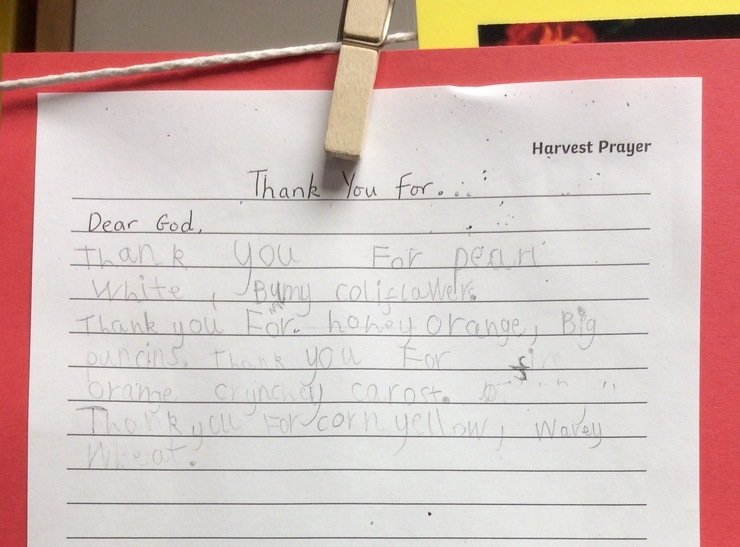 Harvest Prayer
Thank You For....
Dear God,
Thank you For pearl
White, Bumy coliflawer.
Thank you For honey orange, Big
puncins. Thank you For fire
orange crynchey carost.
Thank you For corn yellow, wavey
wheat.